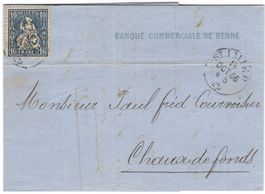 FRANCO
BANQUE COMMERCIALE DE BERNE
ST. IMIER
15
OCT 66
Monsieur Paul fréd Courvoisier
Chaux de fonds